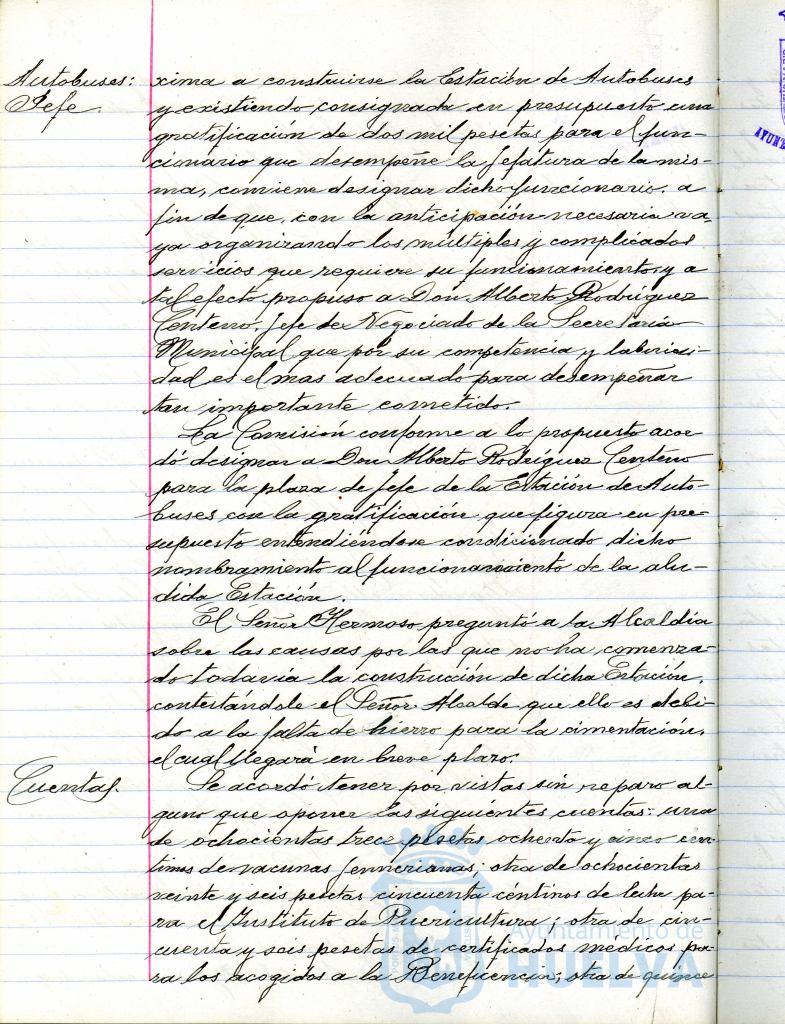 Autobuses:
Jefe.
xima a construirse la Estación de Autobuses
y existiendo consignada en presupuesto una
gratificación de dos mil pesetas para el fun-
cionario que desempeñe la jefatura de la mis-
ma, conviene designar dicho funcionario, a
fin de que, con la anticipación necesaria va-
ya organizando los múltiples y complicados
servicios que requiere su funcionamiento, y a
tal efecto propuso a Don Alberto Rodríguez
Centeno, Jefe de Negociado de la Secretaría
Municipal que por su competencia y laboriosi-
dad es el mas adecuado para desempeñar
tan importante cometido.
La Comisión conforme a lo propuesto acor-
dó designar a Don Alberto Rodríguez Centeno
para la plaza de Jefe de la Estación de Auto-
buses con la gratificación que figura en pre-
supuesto entendiéndose condicionado dicho
nombramiento al funcionamiento de la alu-
dida Estación.
El Señor Hermoso preguntó a la Alcaldía
sobre las causas por las que no ha comenza-
do todavía la construcción de dicha Estación,
contestándole el Señor Alcalde que ello es debi-
do a la falta de hierro para la cimentación,
el cual llegará en breve plazo.
Cuentas.
Se acordó tener por vistas sin reparo al-
guno que oponer las siguientes cuentas: una
de ochocientas trece pesetas ochenta y cinco cén-
timos de vacunas jennerianas; otra de ochocientas
veinte y seis pesetas cincuenta céntimos de leche pa-
ra el Instituto de Puericultura; otra de cin-
cuenta y seis pesetas de certificados medicos pa-
ra los acogidos a la Beneficencia; otra de quince
Ayuntamiento de
HUELVA